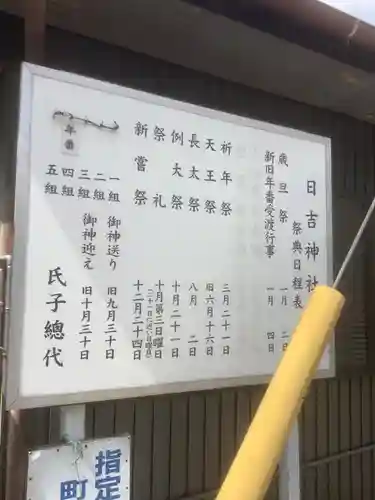 日吉神社
祭典日程表
歳旦祭 一月 二日
新旧年番受渡行事 一月 四日
祈年祭 三月二十一日
天王祭 旧六月十六日
長太祭 八月 二日
例大祭 十月二十一日
祭礼 十月第三日曜日
新嘗祭 十二月二十四日
一組 御神送り 旧九月三十日
二組
三組 御神迎え 旧十月三十日
四組
五組
年番
氏子總代
指定
町